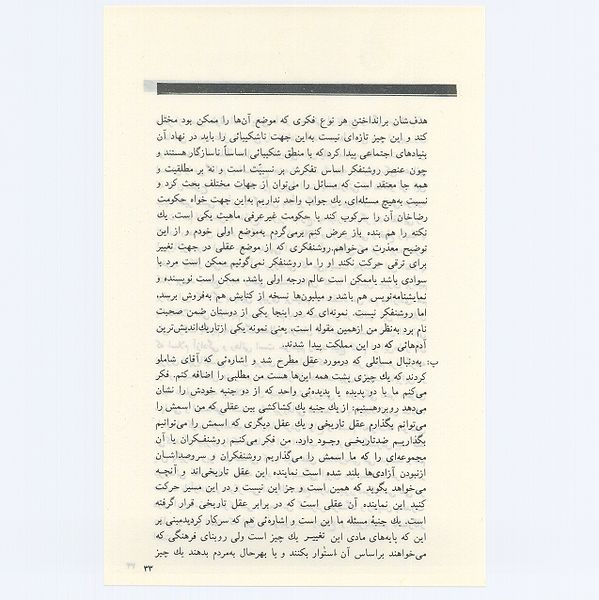 هدف‌شان برانداختن هر نوع فکری که موضع آن‌ها را ممکن بود مختل
کند و این چیز تازه‌ای نیست به‌این جهت ناشکیبائی را باید در نهاد آن
بنیادهای اجتماعی پیدا کرد که با منطق شکیبائی اساساً ناسازگار هستند و
چون عنصر روشنفکر اساس تفکرش بر نسبیّت است و نه بر مطلقیت و
همه جا معتقد است که مسائل را می‌توان از جهات مختلف بحث کرد و
نسبت به‌هیچ مسئله‌ای، یك جواب واحد نداریم به‌این جهت خواه حکومت
رضاخان آن را سرکوب کند یا حکومت غیرعرفی ماهیت یکی است. یك
نکته را هم بنده باز عرض کنم برمی‌گردم به‌موضع اولی خودم و از این
توضیح معذرت می‌خواهم.روشنفکری که از موضع عقلی در جهت تغییر
برای ترقی حرکت نکند او را ما روشنفکر نمی‌گوئیم ممکن است مرد با
سوادی باشد یاممکن است عالم درجه اولی باشد، ممکن است نویسنده و
نمایشنامه‌نویس هم باشد و میلیون‌ها نسخه از کتابش هم به‌فروش برسد،
اما روشنفکر نیست. نمونه‌ای که در اینجا یکی از دوستان ضمن صحبت
نام برد به‌نظر من ازهمین مقوله است، یعنی نمونه یکی ازتاریك‌اندیش‌ترین
آدم‌هائی که در این مملکت پیدا شدند.
ب: به‌دنبال مسائلی که درمورد عقل مطرح شد و اشاره‌ئی که آقای شاملو
کردند که یك چیزی پشت همه این‌ها هست من مطلبی را اضافه کنم. فکر
می‌کنم ما با دو پدیده یا پدیده‌ئی واحد که از دو جنبه خودش را نشان
می‌دهد روبروهستیم: از یك جنبه یك کشاکشی بین عقلی که من اسمش را
می‌توانم بگذارم عقل تاریخی و یك عقل دیگری که اسمش را می‌توانیم
بگذاریـم ضدتاریخـی وجـود دارد. من فکر می‌کنـم روشنفکـران یا آن
مجموعه‌ای را که ما اسمش را می‌گذاریم روشنفکران و سروصداشـان
ازنبودن آزادی‌ها بلند شده است نماینده این عقل تاریخی‌اند و آنچـه
می‌خواهد بگوید که همین است و جز این نیست و در این مسیر حرکت
کنید این نماینده آن عقلی است که در برابر عقل تاریخی قرار گرفته
است. یك جنبۀ مسئله ما این است و اشاره‌ئی هم که سرکار کردیدمبنی بر
این که پایه‌های مادی این تغییـر یك چیز است ولی روبنای فرهنگی که
می‌خواهند براساس آن استوار بکنند و یا بهرحال به‌مردم بدهند یك چیز
۳۳